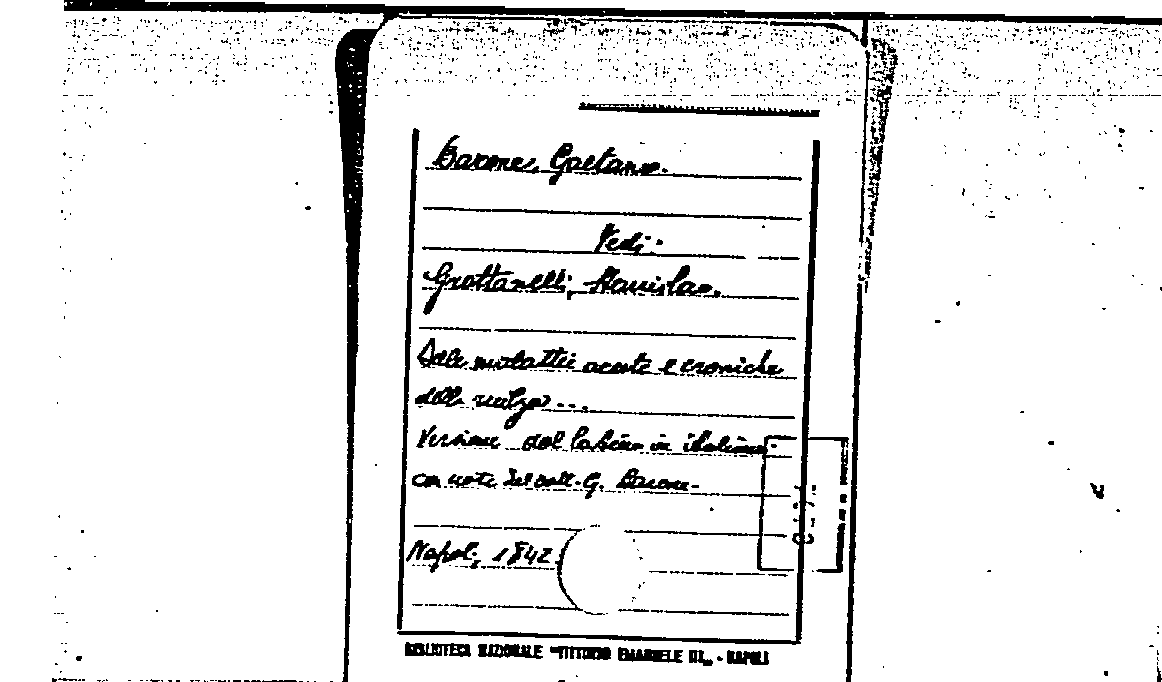 Barone, Gaetano.
Vedi:
Grottanelli, Stanislao.
Delle malattie acute e croniche
della milza...
Versione dal latino in italiano
con note del dott. G. Barone.
Napoli, 1842.
BIBLIOTECA NAZIONALE "VITTORIO EMANUELE III„ - NAPOLI